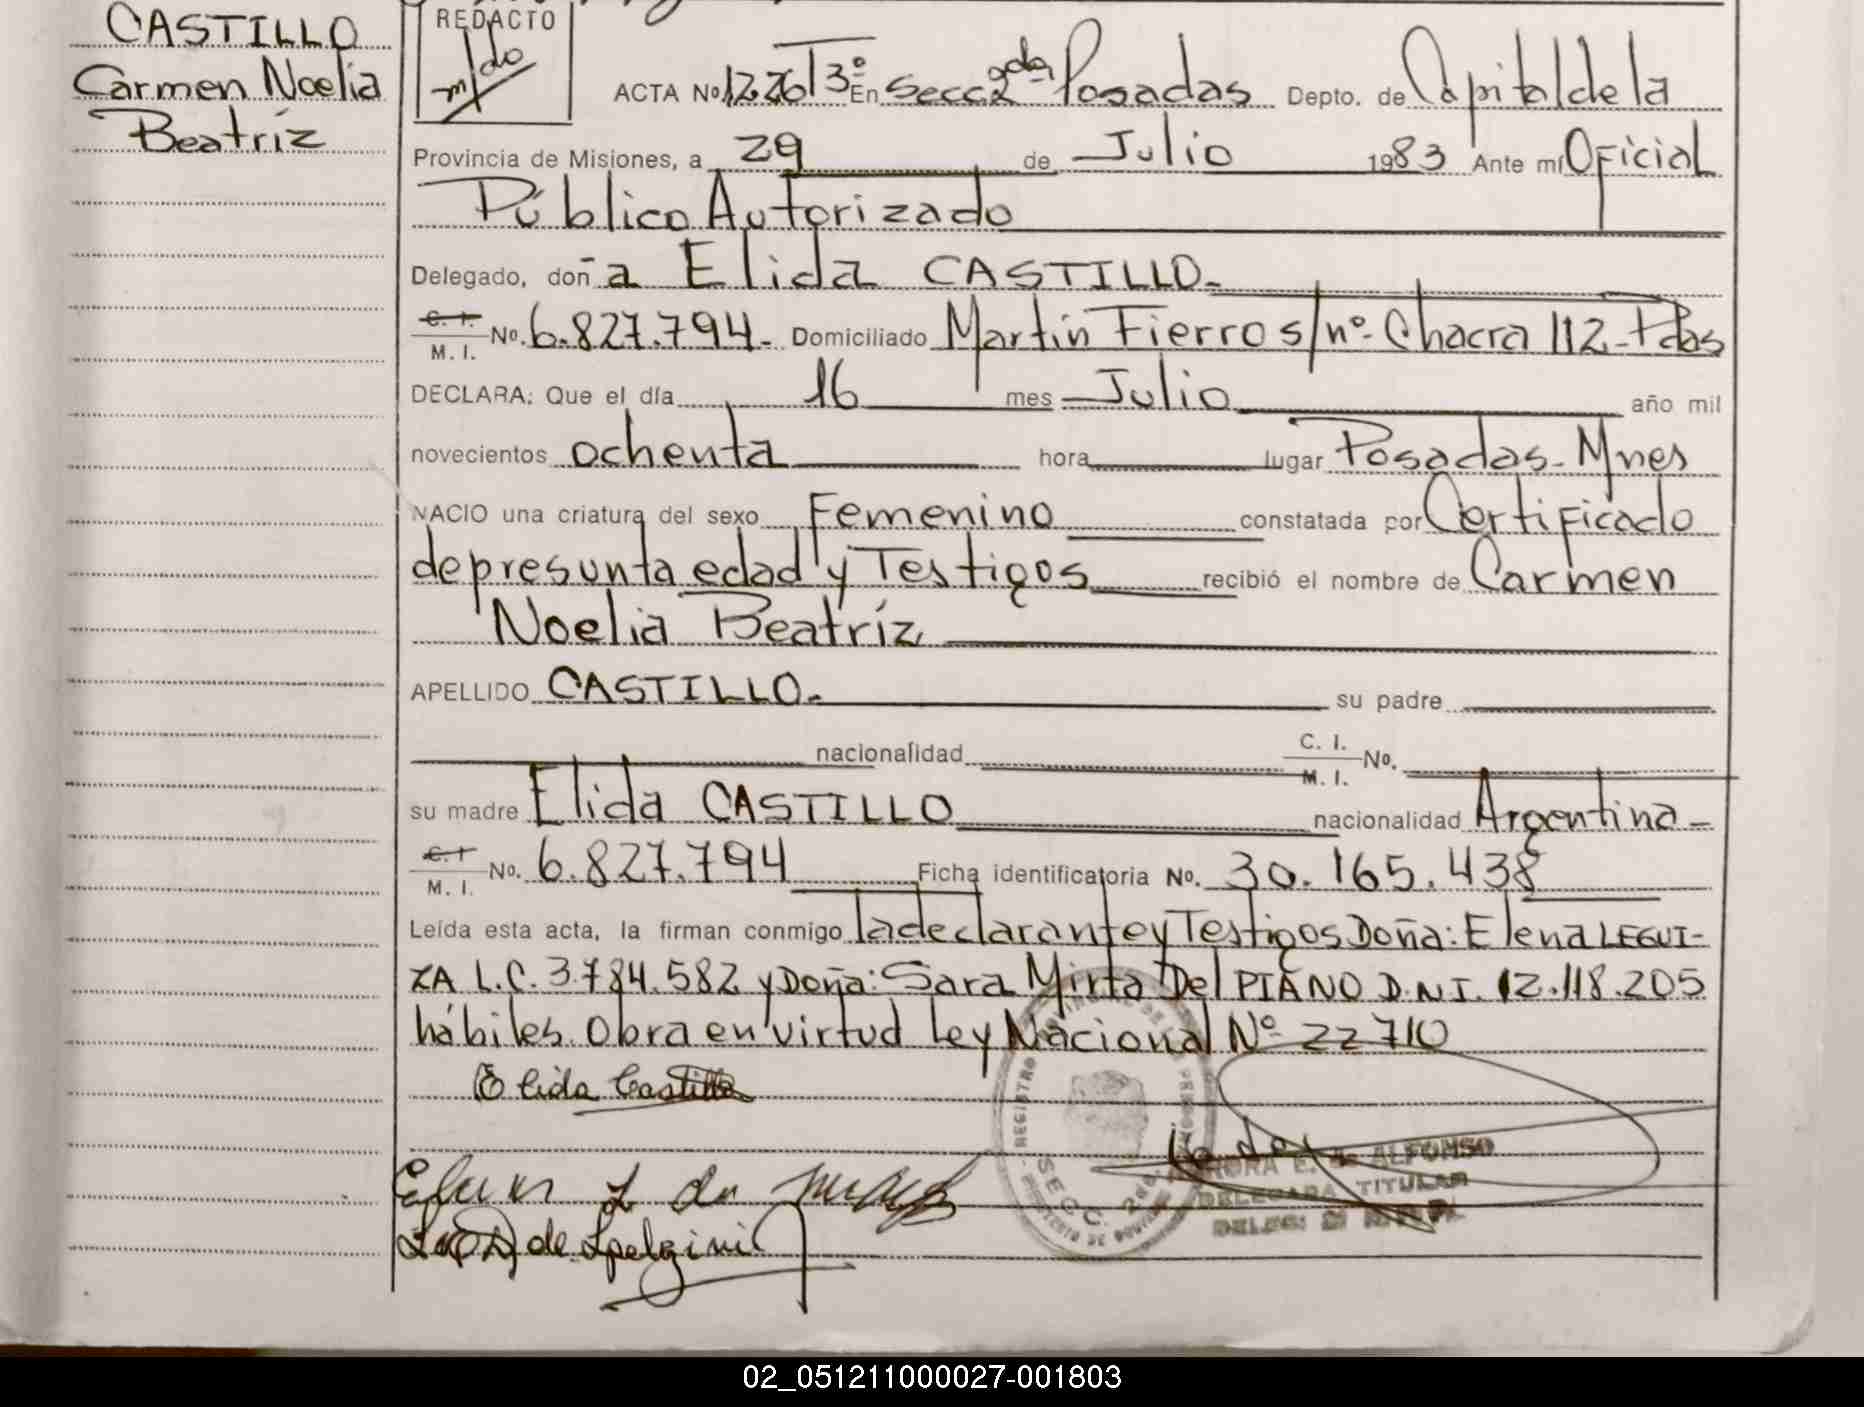 CASTILLO
Carmen Noelia
Beatríz
REDACTO
ACTA No. 1226 T3º En Secc. 2da Posadas Depto. de Capital de la
Provincia de Misiones, a 29 de Julio 1983 Ante mí Oficial
Público Autorizado
Delegado, doña Elida CASTILLO.-
C. I. M. I. No. 6.827.794.- Domiciliado Martín Fierro s/nº- Chacra 112- Pdas
DECLARA: Que el día 16 mes Julio año mil
novecientos ochenta hora lugar Posadas- Mnes
NACIO una criatura del sexo Femenino constatada por Certificado
de presunta edad y Testigos recibió el nombre de Carmen
Noelia Beatríz
APELLIDO CASTILLO.- su padre
nacionalidad C. I. M. I. No.
su madre Elida CASTILLO nacionalidad Argentina-
C. I. M. I. No. 6.827.794 Ficha identificatoria No. 30.165.438
Leída esta acta, la firman conmigo la declarante y Testigos Doña: Elena LEGUI-
ZA L.C. 3.784.582 y Doña: Sara Mirta Del PIANO D.N.I. 12.118.205
hábiles. Obra en virtud Ley Nacional Nº 22710
Elida Castillo
ALFONSO
DELEGADA TITULAR
SECC. 2da.
02_051211000027-001803